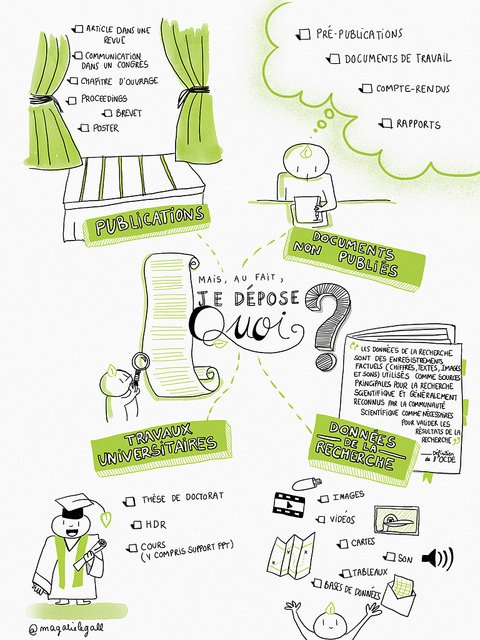 ARTICLE DANS UNE
REVUE
COMMUNICATION
DANS UN CONGRÈS
CHAPITRE D'OUVRAGE
PROCEEDINGS
BREVET
POSTER
PUBLICATIONS
PRÉ-PUBLICATIONS
DOCUMENTS DE TRAVAIL
COMPTE-RENDUS
RAPPORTS
DOCUMENTS
NON PUBLIÉS
MAIS, AU FAIT,
JE DÉPOSE
Quoi ?
"LES DONNÉES DE LA RECHERCHE
SONT DES ENREGISTREMENTS
FACTUELS (CHIFFRES, TEXTES, IMAGES
ET SONS) UTILISÉS COMME SOURCES
PRINCIPALES POUR LA RECHERCHE
SCIENTIFIQUE ET GÉNÉRALEMENT
RECONNUS PAR LA COMMUNAUTÉ
SCIENTIFIQUE COMME NÉCESSAIRES
POUR VALIDER LES
RÉSULTATS DE LA
RECHERCHE"
Définition
de l'OCDE
TRAVAUX
UNIVERSITAIRES
DONNÉES
DE LA
RECHERCHE
THÈSE DE DOCTORAT
HDR
COURS
(Y COMPRIS SUPPORT PPT)
IMAGES
VIDÉOS
CARTES
SON
TABLEAUX
BASES DE DONNÉES
@magalielegall